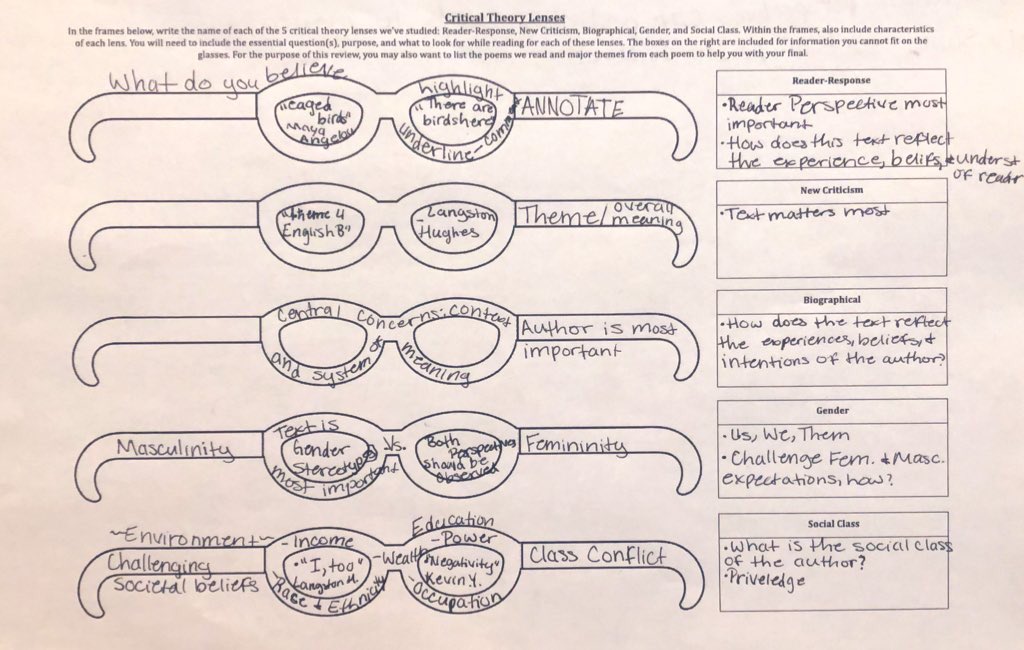 Critical Theory Lenses
In the frames below, write the name of each of the 5 critical theory lenses we've studied: Reader-Response, New Criticism, Biographical, Gender, and Social Class. Within the frames, also include characteristics
of each lens. You will need to include the essential question(s), purpose, and what to look for while reading for each of these lenses. The boxes on the right are included for information you cannot fit on the
glasses. For the purpose of this review, you may also want to list the poems we read and major themes from each poem to help you with your final.
What do you believe
"caged
birds"
Maya
Angelou
highlight
"There are
birdshere
underline-
ANNOTATE
Reader-Response
•Reader Perspective most
important
•How does this text reflect
the experience, belifs, & underst
of readr
"Theme 4
English B"
-Langston
Hughes
Theme/overall
meaning
New Criticism
•Text matters most
Central concerns: context
and system of meaning
Author is most
important
Biographical
•How does the text reflect
the experiences, beliefs, &
intentions of the author?
Masculinity
Text is
Gender
Stereotypes
most important
Vs.
Both
Perspectives
should be
observed
Femininity
Gender
•Us, We, Them
•Challenge Fem. & Masc.
expectations, how?
~Environment~
Challenging
Societal beliefs
-Income
•"I, too"
Langston H.
Race & Ethnicity
-Wealth
Education
-Power
"Negativity"
Kevin Y.
-Occupation
Class Conflict
Social Class
•What is the social class
of the author?
•Priveledge